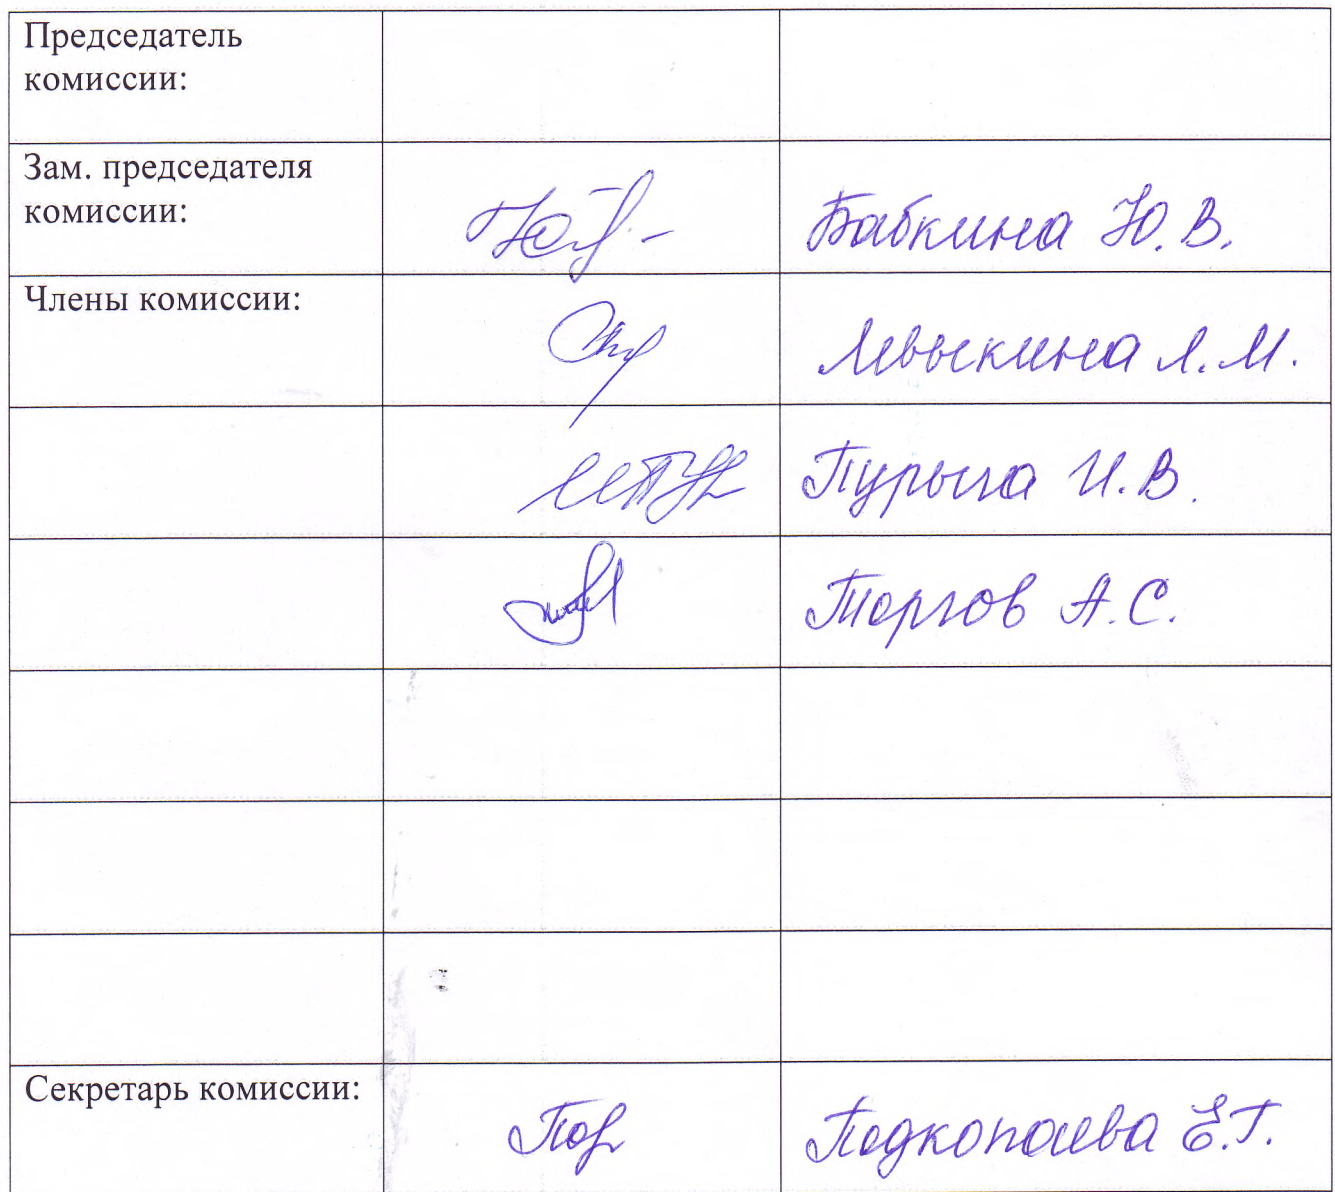 Председатель
комиссии:
Зам. председателя
комиссии:
Бабкина Ю. В.
Члены комиссии:
Левыкина Л. М.
Пурыга И. В.
Торгов А. С.
Секретарь комиссии:
Подкопаева Е. Г.